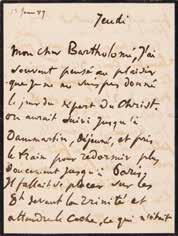 Jeudi
Mon cher Bartholomé, j'ai
souvent pensé au plaisir
que je ne me suis pas donné
le jour du Christ.
on aurait suivi jusqu'à
Dammartin, déjeuné, et pris
le train pour redormir plus
doucement jusqu'à Paris,
Il fallait se placer sur les
devant la Trinité et
attendre le coche, ce qui n'était